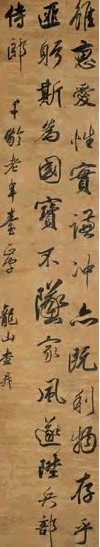 維惠愛性實謙沖亦既利物存乎
匪躬斯為國寶不墜家風遂陞兵部
侍郎
千齡老年臺
龍山查昇